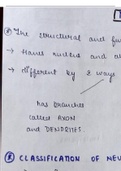 The structural and fu
→ Have nucleus and a
→ different by 2 ways
has branches
called AXON
and DENDRITES
CLASSIFICATION OF NEU